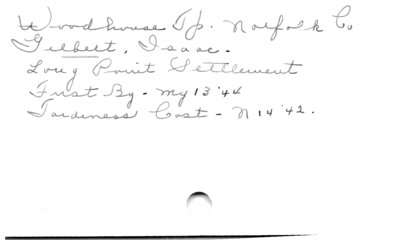 Woodhouse Tp. Norfolk Co
Gilbert, Isaac.
Long Point Settlement
First By - My 13 '44
Tardiness Cost - N 14 '42.